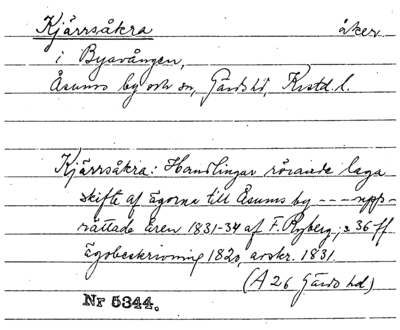 Kjärrsåkra åker
i Byavången,
Åsums by och sn, Gärds hd, Kristd. l.
Kjärrsåkra: Handlingar rörande laga
skifte af ägorna till Åsums by ---- upp-
rättade åren 1831-34 af F. Ryberg; s 36 ff
Ägobeskrivning 1820, avskr. 1831.
(A 26 Gärds hd)
Nr 5344.